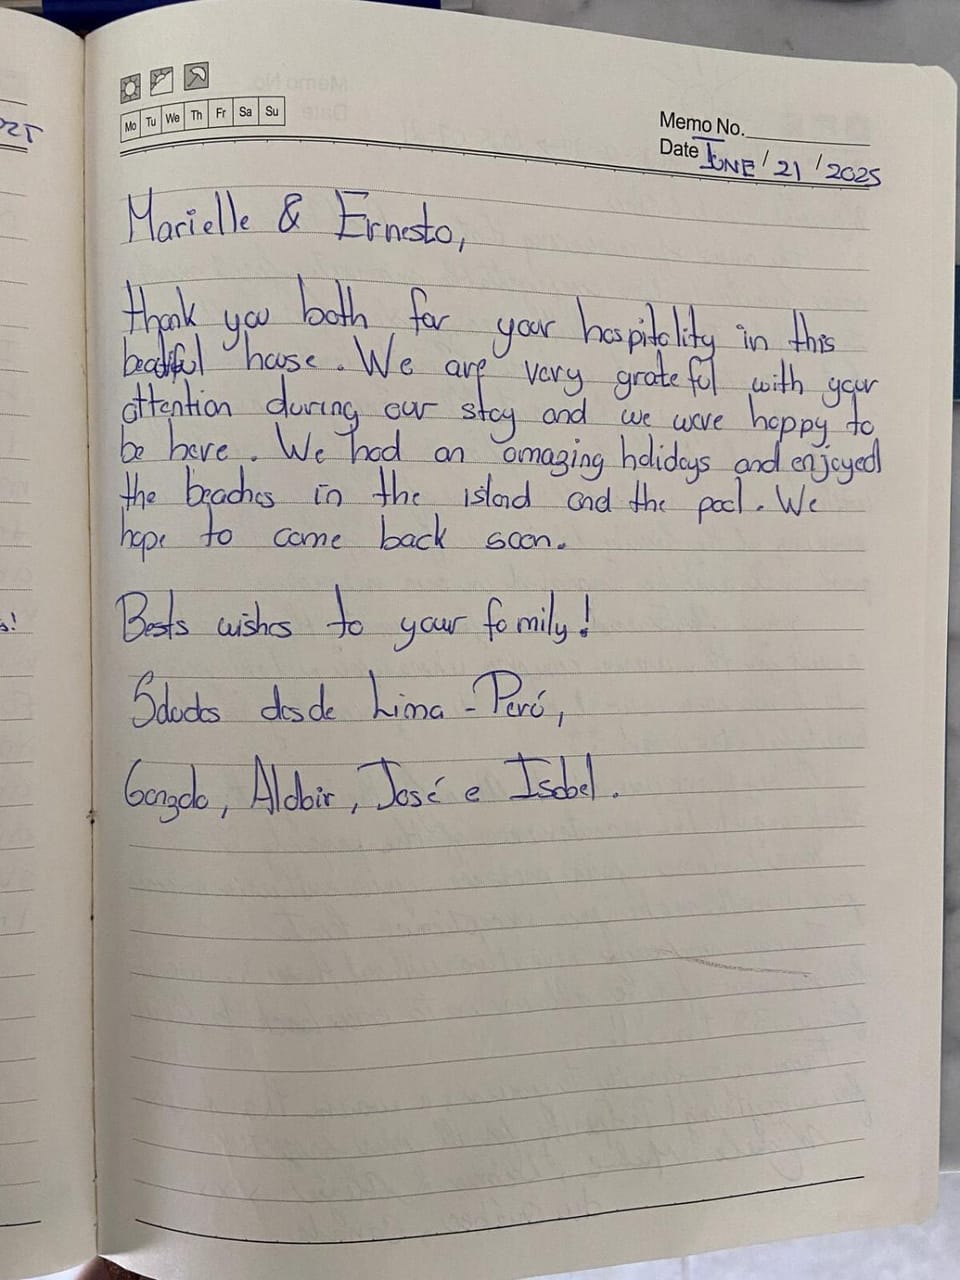 Mo Tu We Th Fr Sa Su
Memo No.
Date JUNE / 21 / 2025
Marielle & Ernesto,
thank you both for your hospitality in this
beatiful house. We are very grateful with your
attention during our stay and we were happy to
be here. We had an amazing holidays and enjoyed
the beaches in the island and the pool. We
hope to come back soon.
Bests wishes to your family!
Saludos desde Lima - Perú,
Gonzalo, Aldair, José e Isabel.